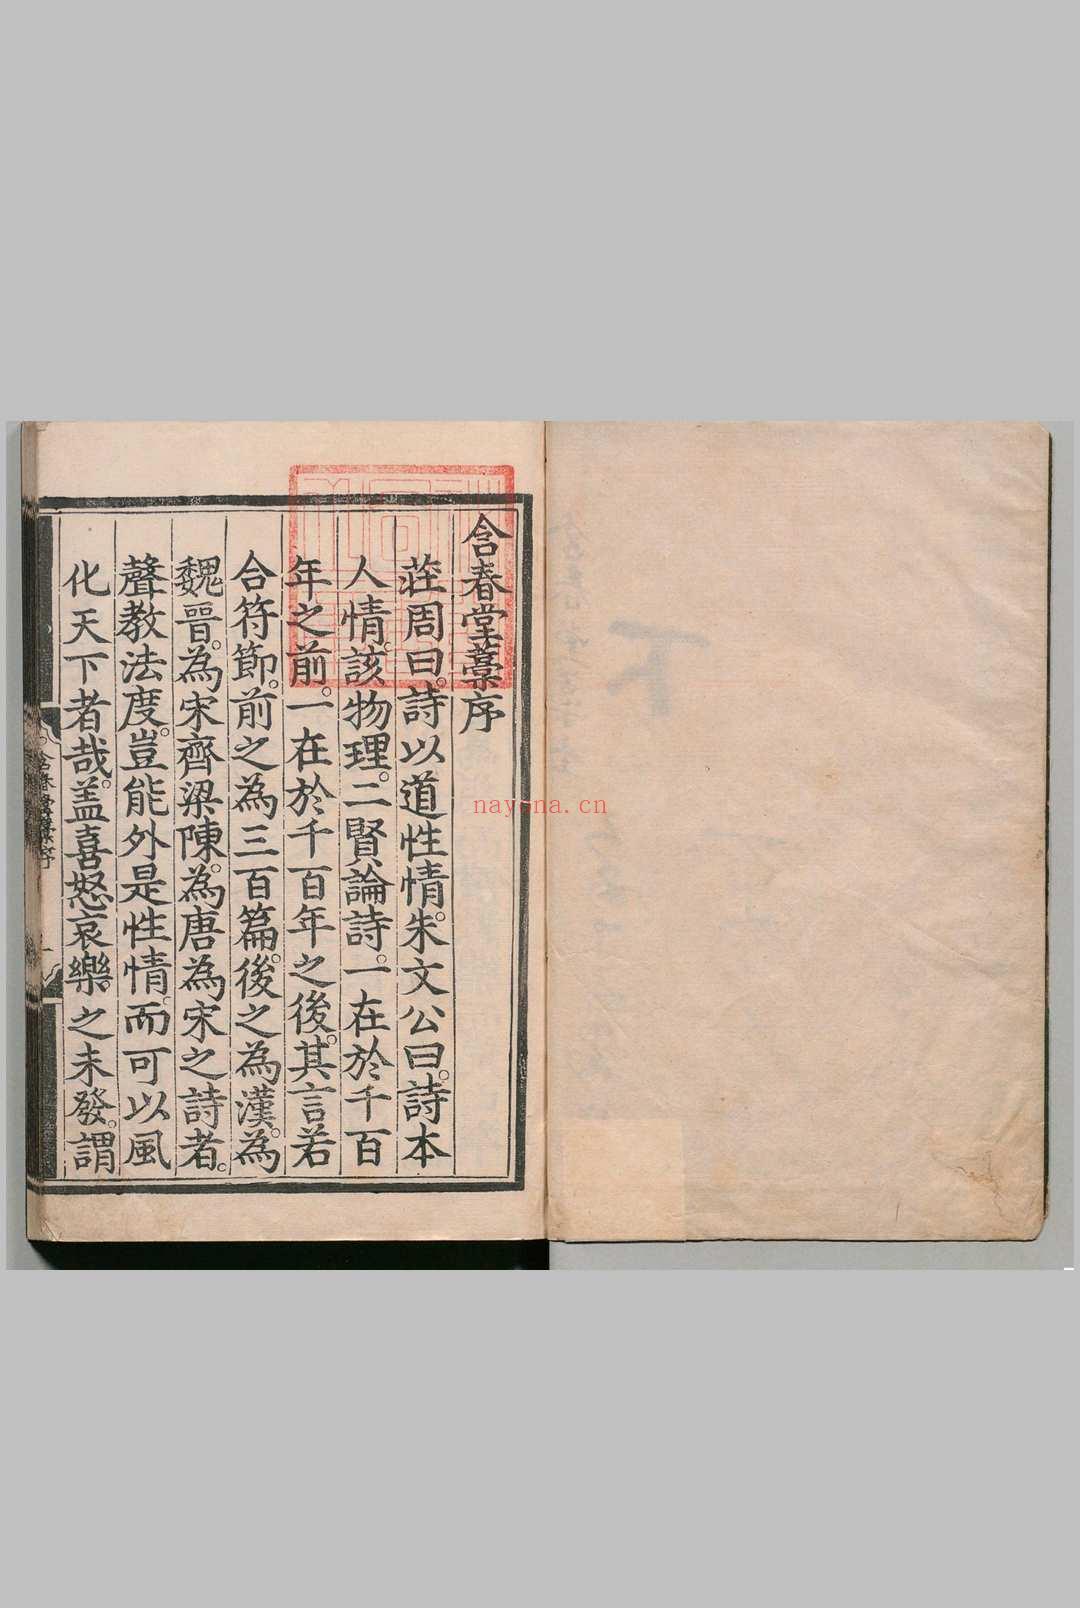 含春堂藁序
莊周曰。詩以道性情。朱文公曰。詩本
人情。該物理。二賢論詩。一在於千百
年之前。一在於千百年之後。其言若
合符節。前之為三百篇。後之為漢。為
魏晉。為宋齊梁陳。為唐為宋之詩者。
聲教法度。豈能外是性情。而可以風
化天下者哉。盖喜怒哀樂之未發。謂
含春堂藁序
一
nayona.cn
下